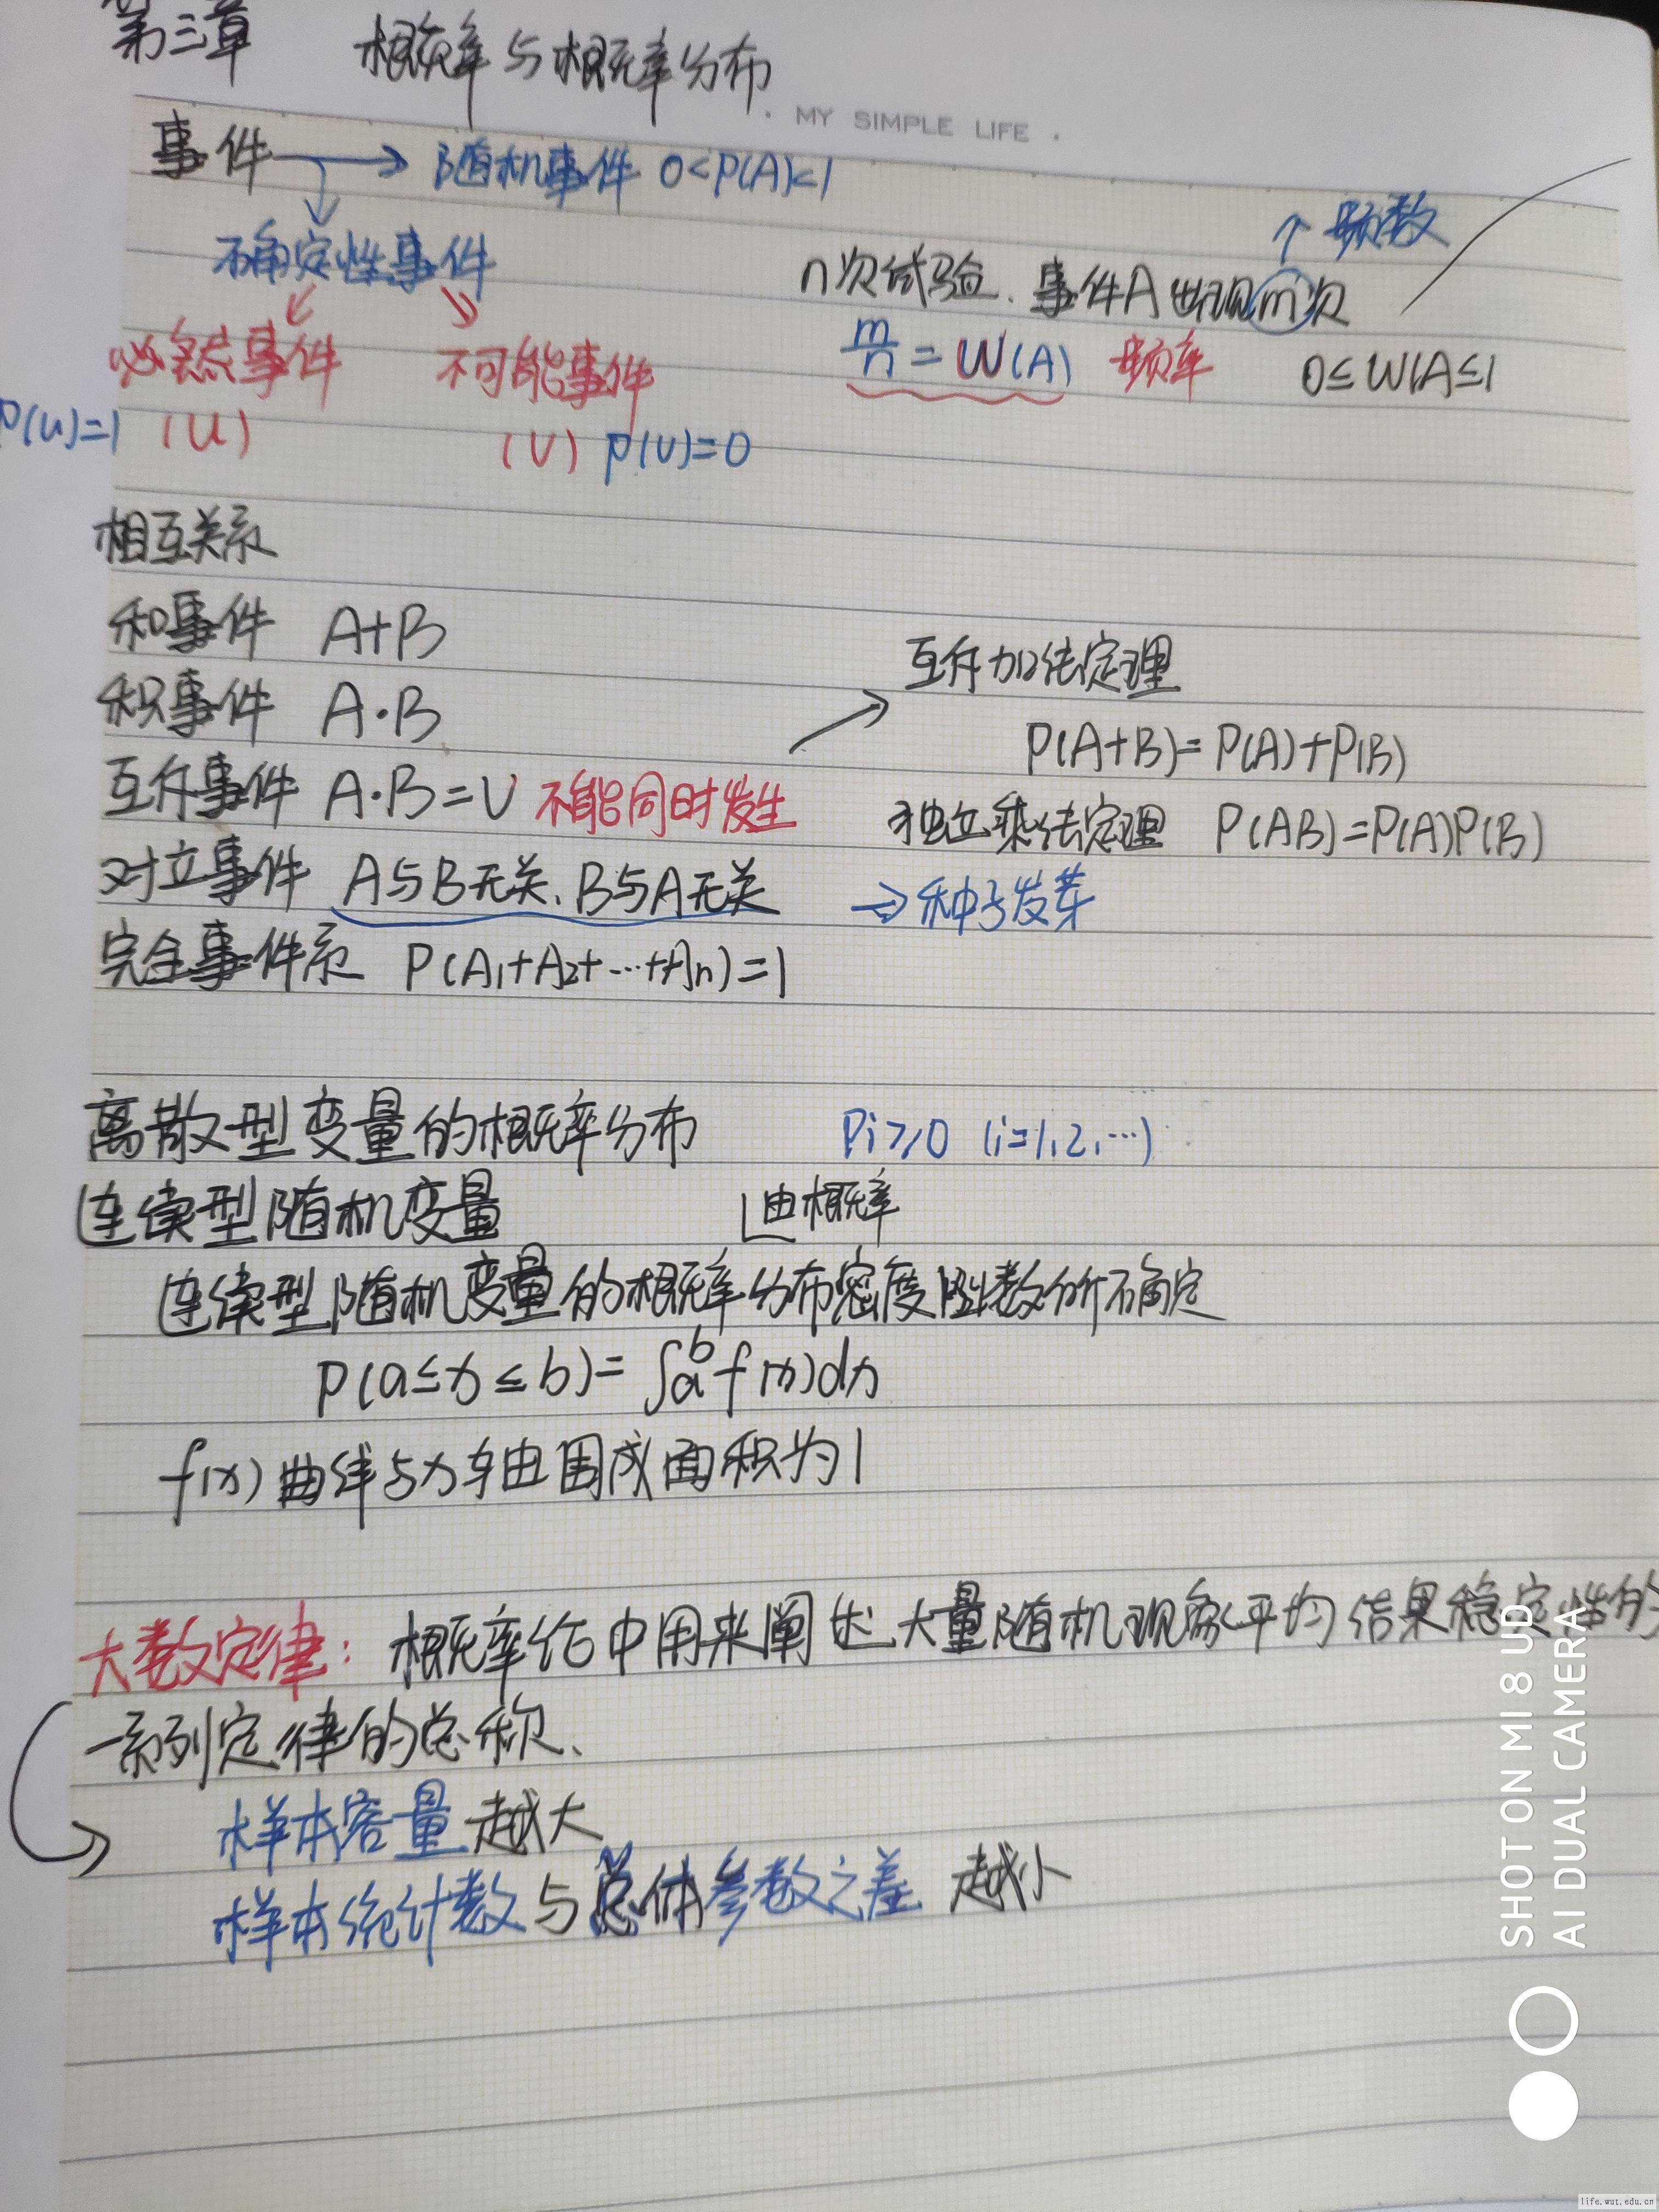 第三章 概率与概率分布
· MY SIMPLE LIFE ·
事件 → 随机事件 0<P(A)<1
确定性事件
↑ 频数
n次试验、事件A出现m次
必然事件 不可能事件
m/n = W(A) 频率 0≤W(A≤1
P(U)=1 (U) (V) P(V)=0
相互关系
和事件 A+B
积事件 A·B
互斥事件 A·B=V 不能同时发生
互斥加法定理
P(A+B)=P(A)+P(B)
对立事件 A与B无关、B与A无关
独立乘法定理 P(AB)=P(A)P(B)
→种子发芽
完全事件系 P(A1+A2+…+An)=1
离散型变量的概率分布 Pi≥0 (i=1,2,…)
连续型随机变量 由概率
连续型随机变量的概率分布密度函数所确定
P(a≤x≤b)=∫ab f(x)dx
f(x)曲线与x轴围成面积为1
大数定律：概率论中用来阐述大量随机现象平均结果稳定性的
一系列定律的总称、
样本容量越大
样本统计数与总体参数之差 越小
SHOT ON MI 8 UD
AI DUAL CAMERA
life.wut.edu.cn